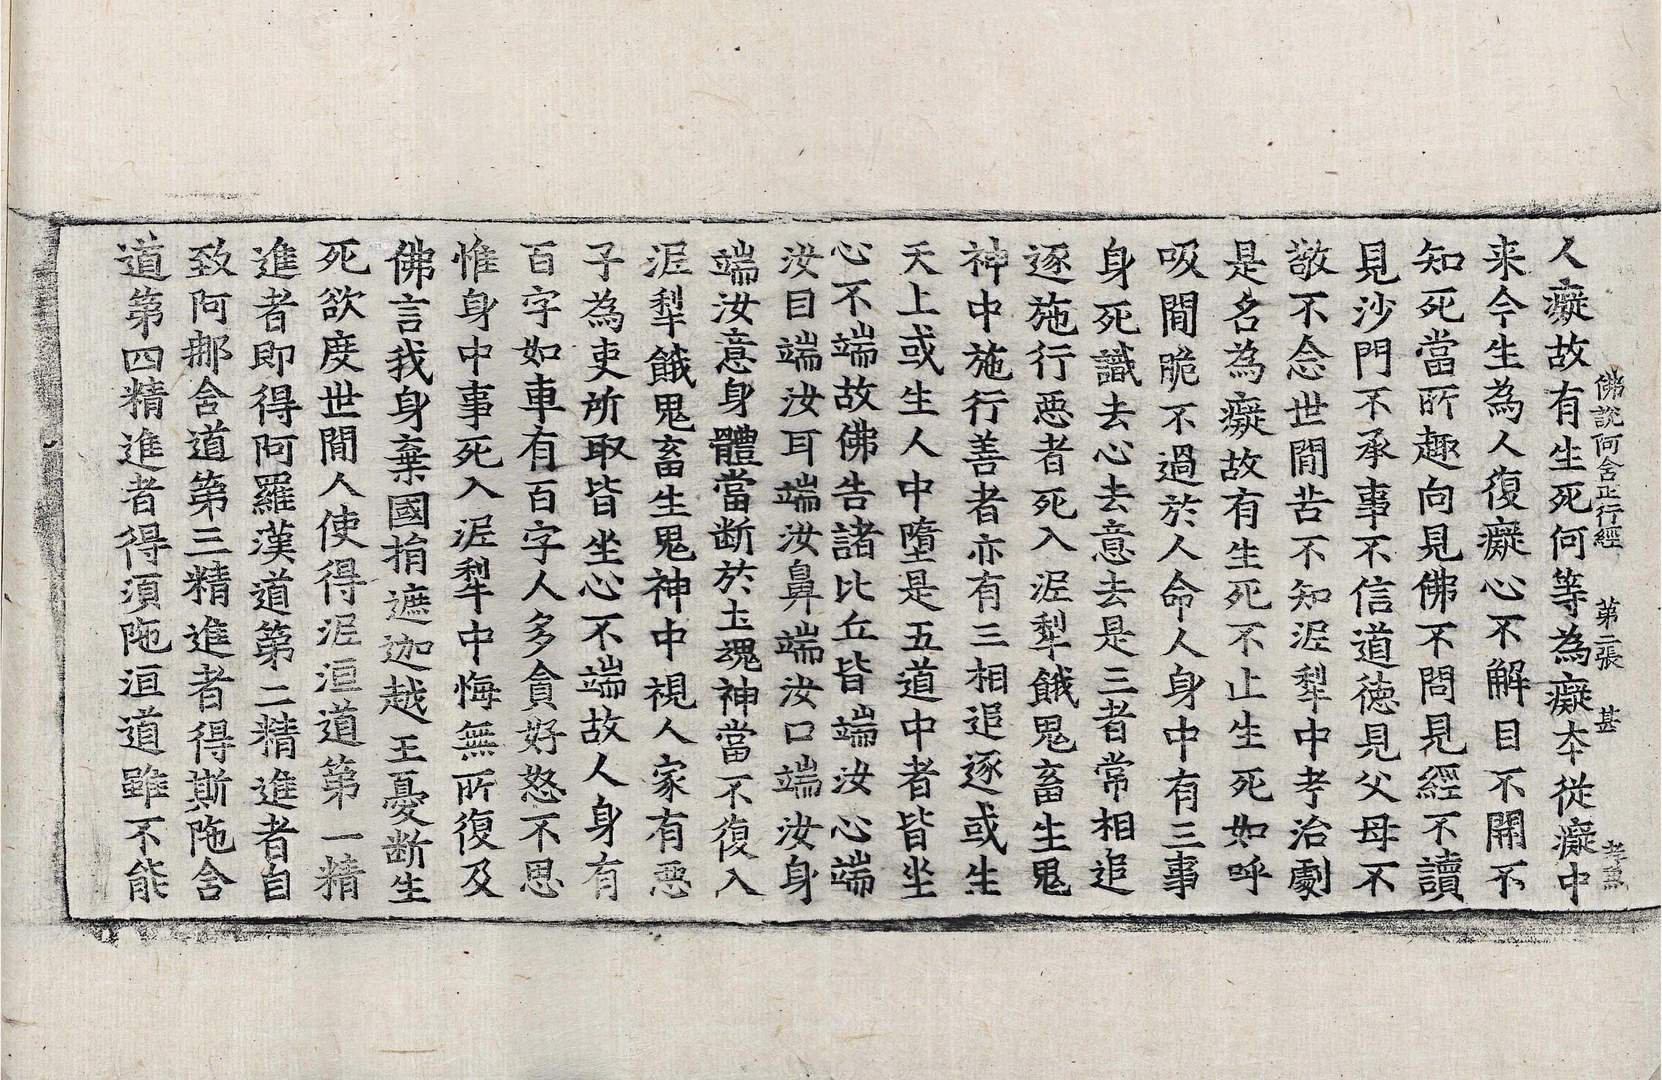 佛說阿含正行經 第二張 甚 孝
人癡故有生死何等為癡本從癡中
来今生為人復癡心不解目不開不
知死當所趣向見佛不問見經不讀
見沙門不承事不信道徳見父母不
敬不念世間苦不知泥犁中考治劇
是名為癡故有生死不止生死如呼
吸間脆不過於人命人身中有三事
身死識去心去意去是三者常相追
逐施行惡者死入泥犁餓鬼畜生鬼
神中施行善者亦有三相追逐或生
天上或生人中墮是五道中者皆坐
心不端故佛告諸比丘皆端汝心端
汝目端汝耳端汝鼻端汝口端汝身
端汝意身體當断於土魂神當不復入
泥犁餓鬼畜生鬼神中視人家有惡
子為吏所取皆坐心不端故人身有
百字如車有百字人多貪好怒不思
惟身中事死入泥犁中悔無所復及
佛言我身棄國捐遮迦越王憂断生
死欲度世間人使得泥洹道第一精
進者即得阿羅漢道第二精進者自
致阿那含道第三精進者得斯陁含
道第四精進者得須陁洹道雖不能